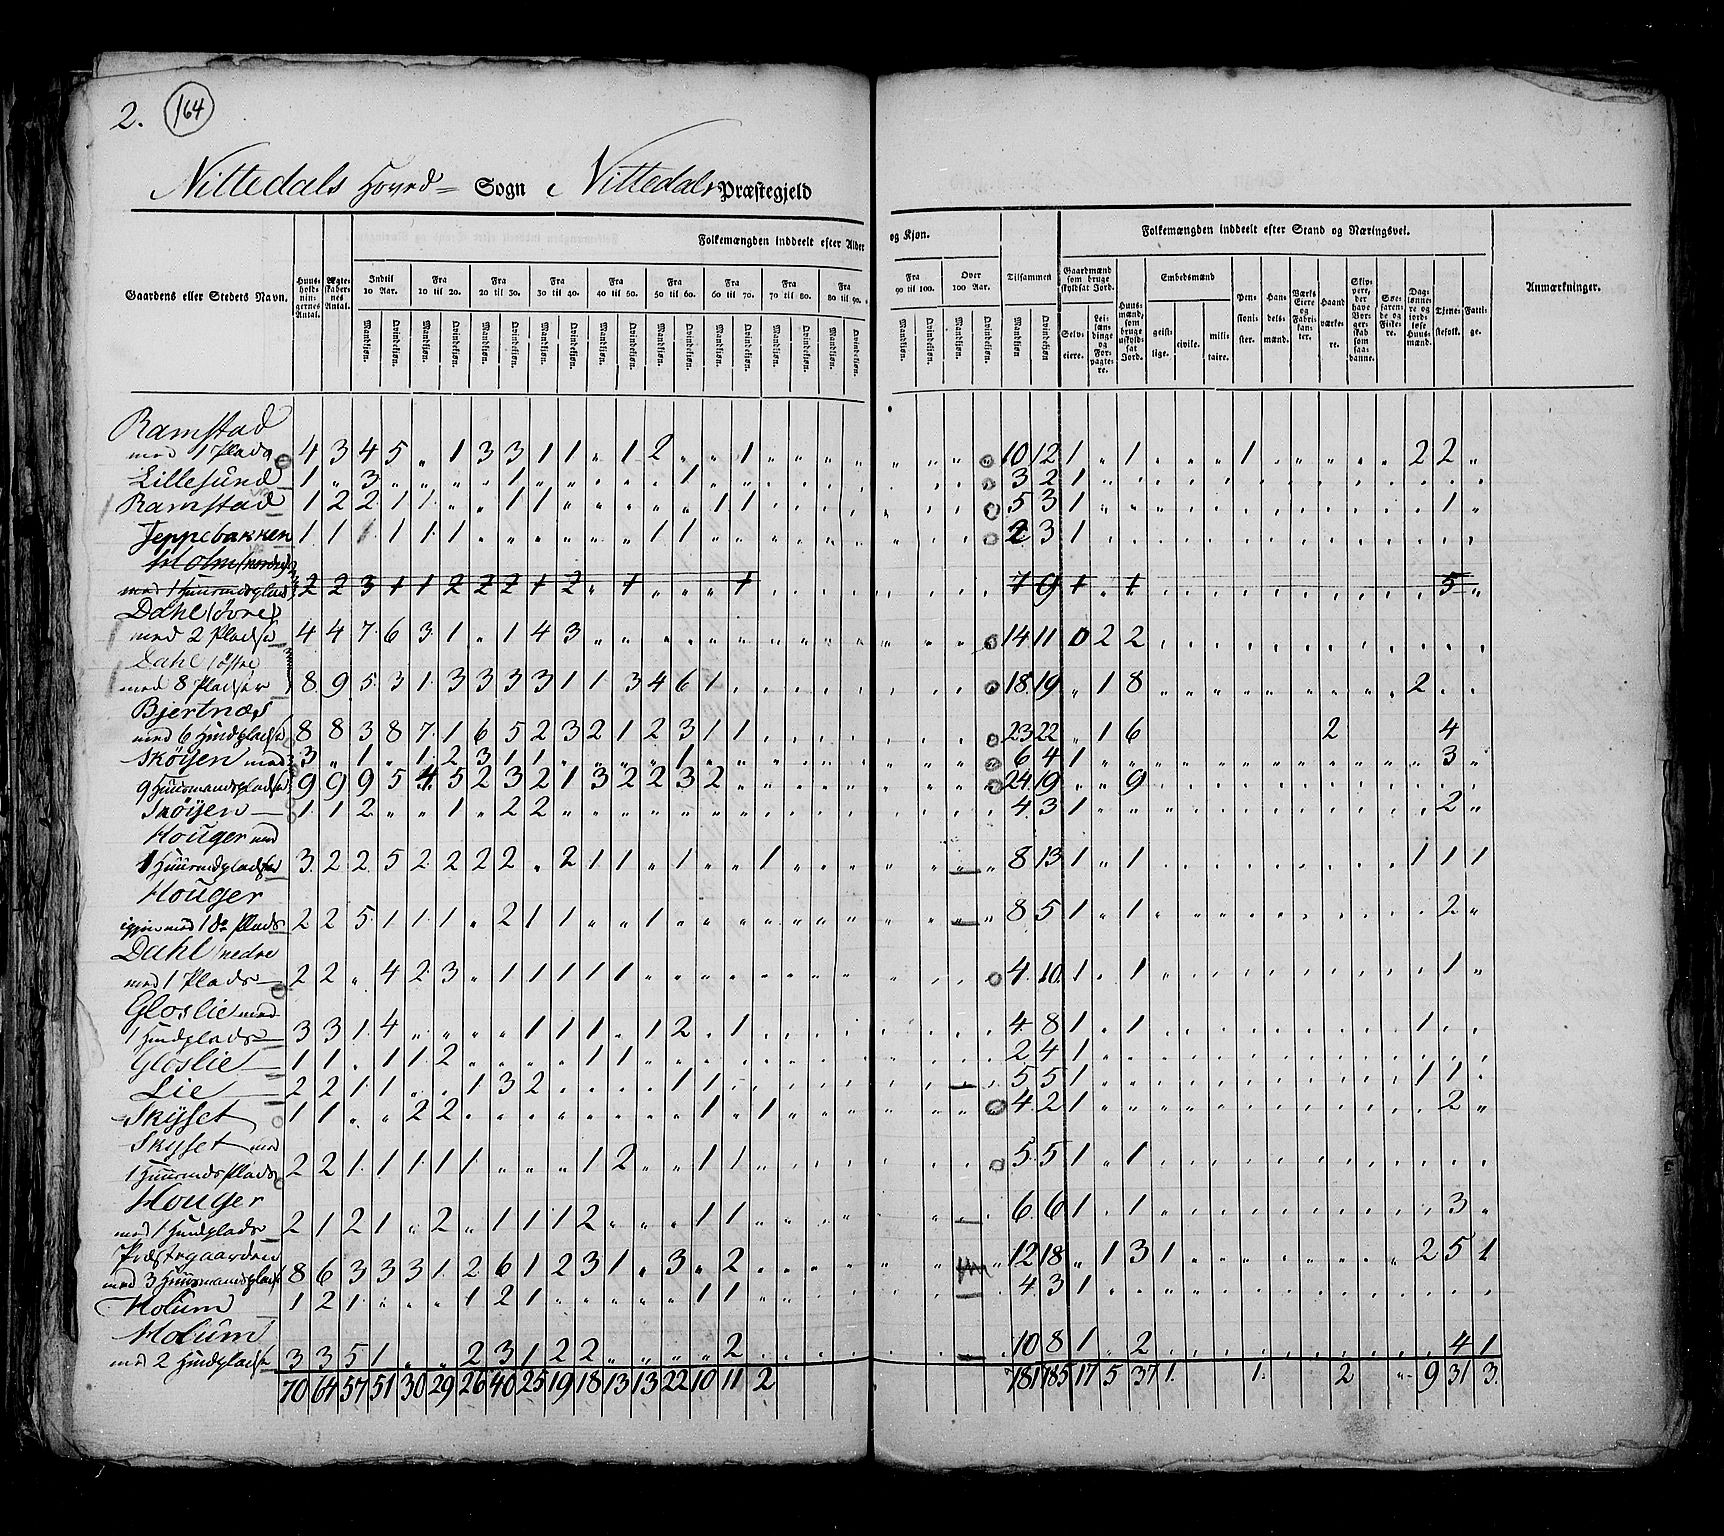 2. 164
Nittedals Hoved= Sogn i Nittedals Præstegjeld
Folkemængden inddeelt efter Alder og Kjøn.
Folkemængden inddeelt efter Stand og Næringsvei.
Gaardens eller Stedets Navn.
Huus-holdningernes Antal.
Ægteskabernes Antal.
Indtil 10 Aar.
Fra 10 til 20.
Fra 20 til 30.
Fra 30 til 40.
Fra 40 til 50.
Fra 50 til 60.
Fra 60 til 70.
Fra 70 til 80.
Fra 80 til 90.
Fra 90 til 100.
Over 100 Aar.
Tilsammen
Mandkjøn. Qvindekjøn.
Gaardmænd som bruge skyldsat Jord.
Selveiere.
Leilændinge og Forpagtere.
Huusmænd, som bruge uskyldsat Jord.
Embedsmænd
geistlige. civile. militaire.
Pensionister.
Handelsmænd.
Værks Eiere og Fabrikanter.
Haandværkere.
Skippere, der have Borgerskab som saadanne.
Søefarende og Fiskere.
Daglønnere og jordløse Huusmænd.
Tjenestefolk.
Fattige.
Anmærkninger.
Ramstad
med 1 Plads 4 3 4 5 „ 1 3 3 1 1 „ 1 2 „ „ 1 10 12 1 „ 1 1 2 2 „
Lillesund 1 „ 3 „ „ „ „ 1 „ „ „ „ „ 1 3 2 1
Ramstad 1 2 2 1 1 „ „ 1 1 „ „ „ „ „ 1 1 5 3 1 1 „
Jeppebakken 1 1 1 1 1 1 „ „ „ „ „ „ 1 1 2 3 1
Holm (nordre)
med 1 Huusmdsplads 2 2 3 1 1 2 2 2 1 2 „ 1 „ „ „ 1 7 9 1 „ 1 5 „
Dahl (øvre)
med 2 Pladse 4 4 7 6 3 1 „ 1 4 3 14 11 0 2 2
Dahl østre
med 8 Pladser 8 9 5 3 1 3 3 3 3 1 1 3 4 6 1 18 19 „ 1 8 2
Bjertnæs
med 6 Husdpladse 8 8 3 8 7 1 6 5 2 3 2 1 2 3 1 1 23 22 „ 1 6 2 4
Skøyen med 3 „ 1 „ 1 2 3 1 1 „ „ „ „ 1 6 4 1 3 „
9 Huusmandspladse 9 9 9 5 4 5 2 3 2 1 3 2 2 3 2 24 19 „ „ 9
Skøyen 1 1 2 „ „ 1 „ 2 2 4 3 1 2 „
Houger med
1 Huusmdpladse 3 2 2 5 2 2 2 2 „ 2 1 1 „ 1 „ „ 1 8 13 1 „ 1 1 1 1
Houger
igjen med 1 do Plads 2 2 5 1 1 1 „ 2 1 1 „ „ 1 8 5 1 „ 1 2 „
Dahl nedre
med 1 Plads 2 2 „ 4 2 3 „ 1 1 1 1 1 4 10 1 „ 1 1 „
Gloslie med
1 Husdplads 3 3 1 4 „ „ „ „ 1 1 1 „ 1 2 „ 1 4 8 1 „ 1 1
Gloslie 1 1 „ 1 1 2 „ „ „ „ 1 1 2 4 1
Lie 2 2 1 1 „ „ 1 3 2 „ „ „ „ 1 1 5 5 1 1 1
Skysset 1 1 „ „ 2 2 „ „ „ „ „ „ „ „ 1 „ 1 4 2 1 2 „
Skysset med
1 Huusmds Plads 2 2 1 1 1 1 1 „ „ „ 1 2 „ „ 1 1 5 5 1 „ 1
Houger
med 1 Husdplads 2 1 2 1 „ 2 „ 1 1 1 2 „ „ „ 1 1 6 6 1 „ 1 3 „
Præstegaarden
med 3 Huusmandsplads 8 6 3 3 3 1 2 6 1 2 3 1 „ 3 „ 2 12 18 „ 1 3 1 2 5 1
Holum 1 2 1 „ „ „ 1 2 1 „ „ „ „ „ 1 1 4 3 1
Holum
med 2 Husdpladse 3 3 5 1 „ „ 2 3 1 2 2 „ „ „ „ 2 10 8 1 „ 2 4 1
70 64 57 51 30 29 26 40 25 19 18 13 13 22 10 11 2 181 185 17 5 37 1 1 2 „ 9 31 3